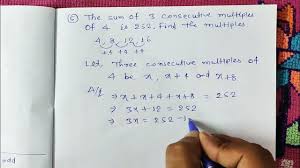 ⑥ The sum of 3 consecutive multiples
of 4 is 252. Find the multiples
4 8 12 16
+4 +4 +4
Let, Three consecutive multiples of
4 be x, x+4 and x+8
A/q
⇒ x+x+4+x+8 = 252
⇒ 3x+12 = 252
⇒ 3x = 252 -1